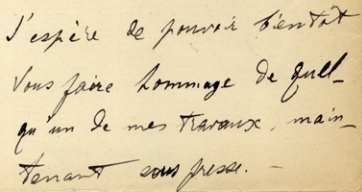 J'espère de pouvoir bientôt
vous faire hommage de quel-
qu'un de mes travaux, main-
tenant sous presse. —